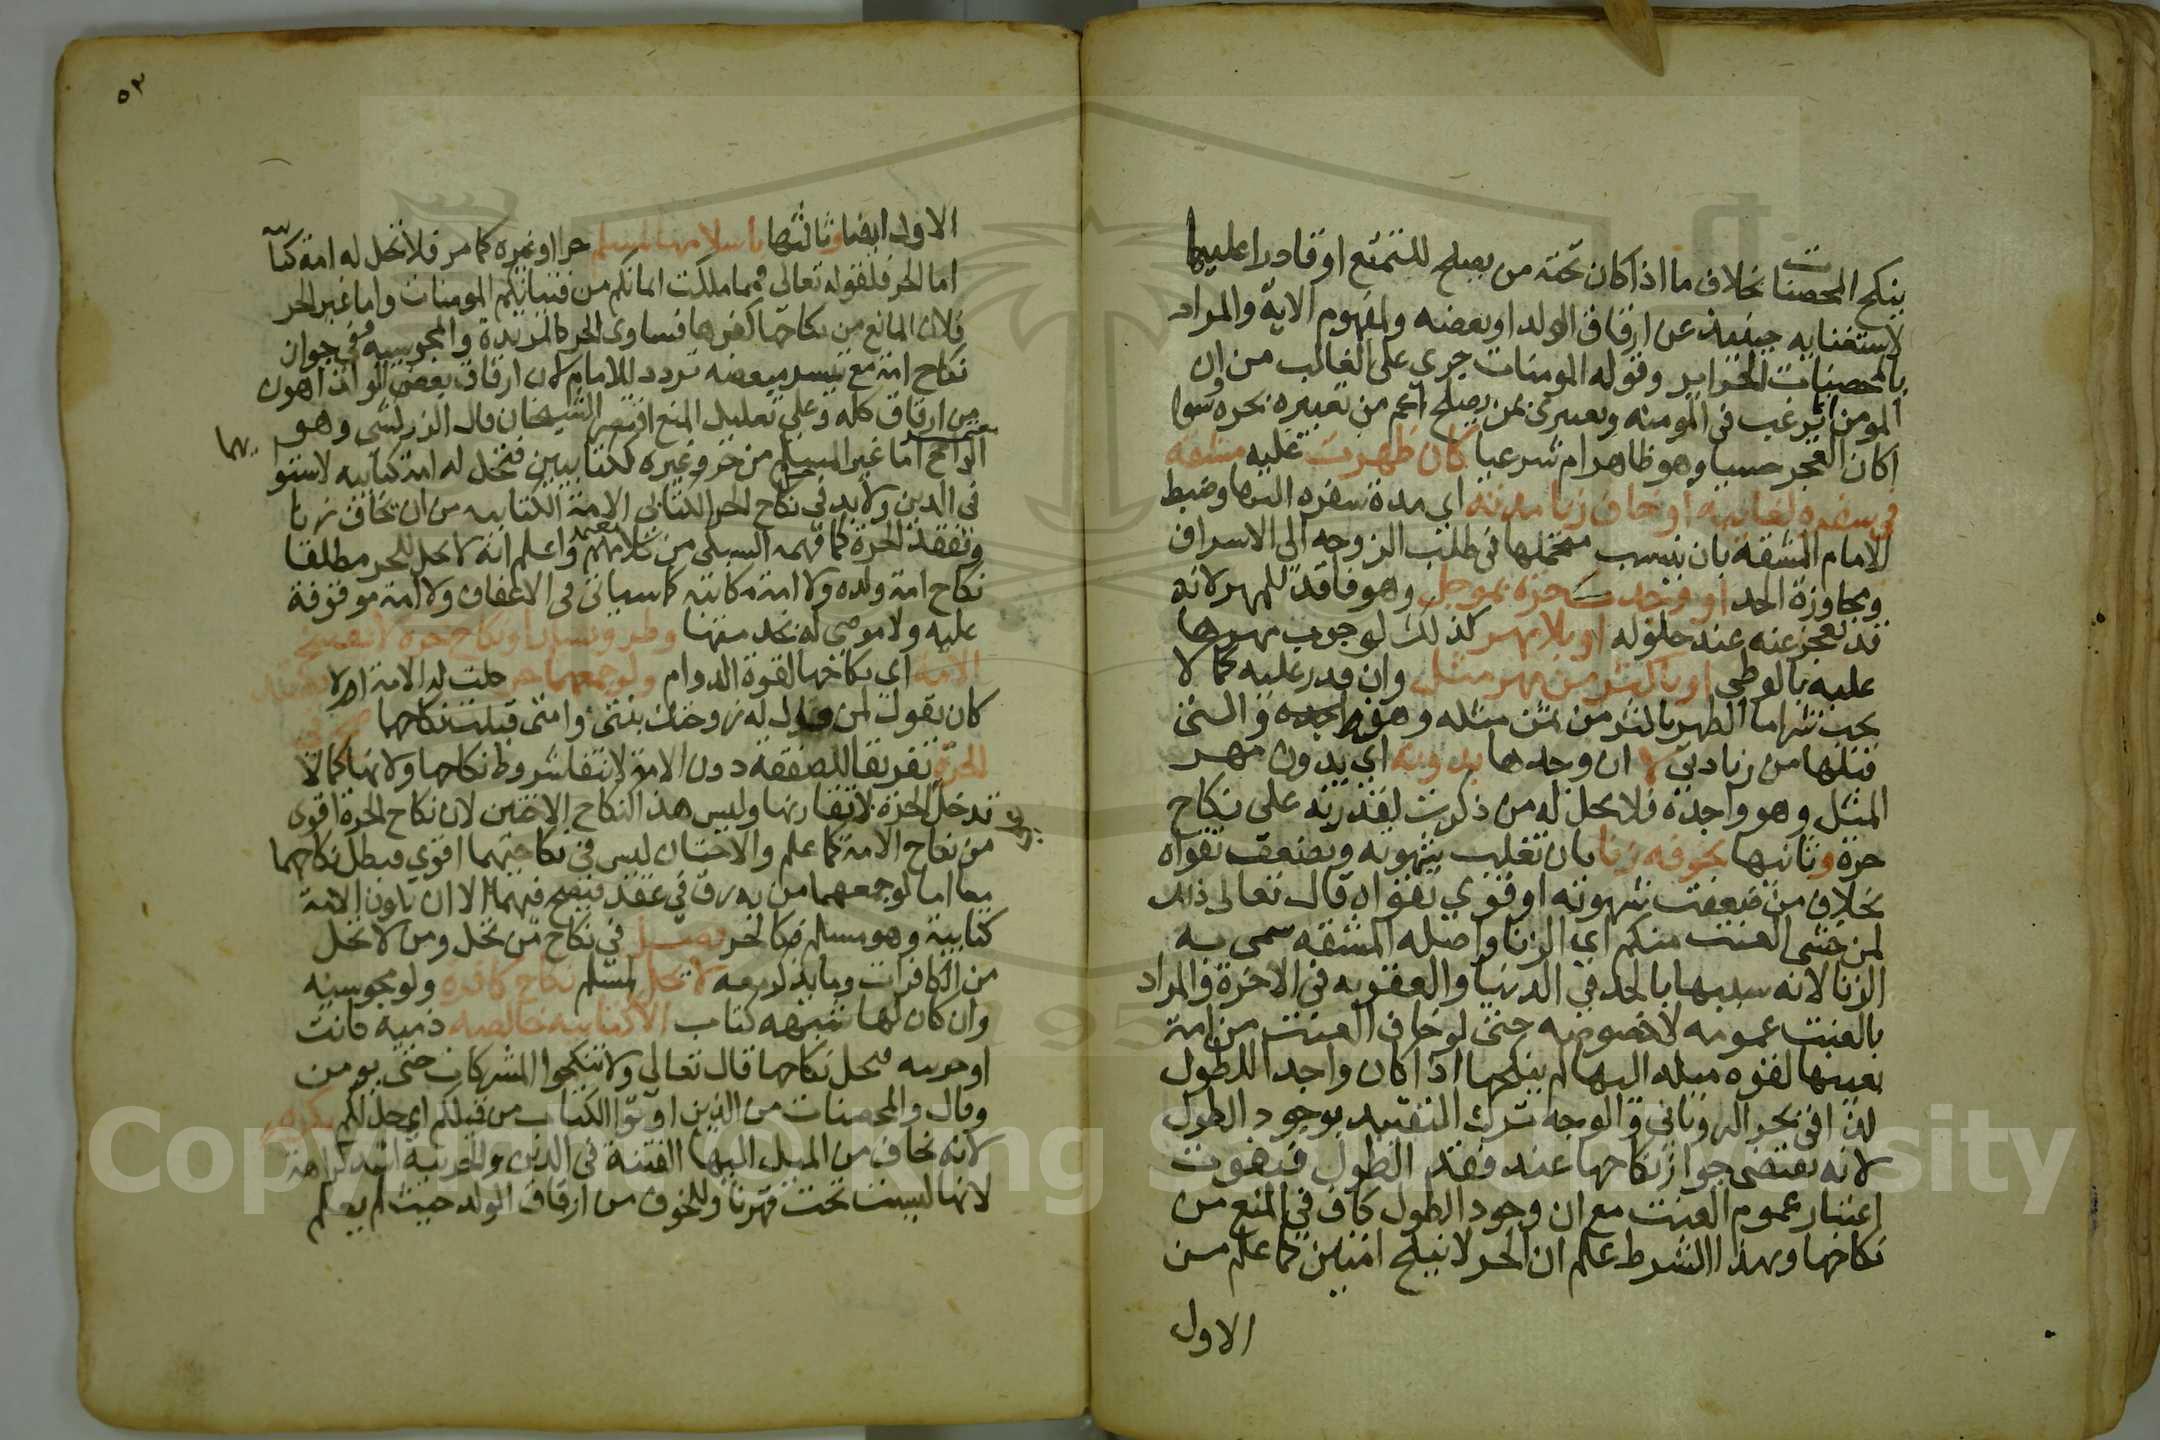 ينكح المحصنات بخلاف ما اذا كان تحته من يصلح للتمتع او قادرا عليها
لاستغنايه حينئذ عن ارقاق الولد او بعضه ولمفهوم الاية والمراد
بالمحصنات الحراير وقوله المومنات جري على الغالب من ان
المومن انما يرغب في المومنه وتعبيري بمن يصلح اعم من تعبيره بحره وسوا
اكان العجز حسيا وهو ظاهر ام شرعيا كان ظهرت عليه مشقه
في سفره لغايبه او خاف زنا مدته اي مدة سفره اليها وضبط
الامام المشقه بان ينسب متحملها في طلب الزوجه الى الاسراف
ومجاوزة الحد او وجدت حره بموجل وهو فاقد للمهر لانه
قد يعجز عنه عند حلوله او بلا مهر كذلك لوجوب مهرها
عليه بالوطي او باكثر من مهر مثل وان قدر عليه كما لا
يجب شراما الطهر باكثر من ثمن مثله وهو واجده والتي
قبلها من زيادتي لا ان وجدها بدونه اي بدون مهر
المثل وهو واجده فلا يحل له من ذكرت لقدرته على نكاح
حرة وثانيها بخوفه زنا بان تغلب شهوته وتضعف تقواه
بخلاف من ضعفت شهوته او قوي تقواه قال تعالى ذلك
لمن خشى العنت منكم اي الزنا واصله المشقه سمى به
الزنا لانه سببها بالحد في الدنيا والعقوبه في الاخرة والمراد
بالعنت عمومه لا خصوصه حتى لو خاف العنت من امة
بعينها لقوه ميله اليها لم ينكحها اذا كان واجدا للطول
كذا في بحر الروياني والوجه ترك التقييد بوجود الطول
لانه يقتضي جواز نكاحها عند فقد الطول فيفوت
اعتبار عموم العنت مع ان وجود الطول كاف في المنع من
نكاحها وبهذا الشرط علم ان الحر لا ينكح امتين كما علم من
الاول
٥٣
الاول ايضا وثالثها باسلامها لمسلم حرا او غيره كما مر فلا تحل له امة كتابيه
اما الحر فلقوله تعالى فمما ملكت ايمانكم من فتياتكم المومنات واما غير الحر
فلان المانع من نكاحها كفرها فساوى الحر كالمرتدة والمجوسيه وفي جواز
نكاح امة مع تيسر مبعضه تردد للامام لان ارقاق بعض الولد اهون
من ارقاق كله وعلى تعليل المنع اقتصر الشيخان قال الزركشي وهو
الراجح اما غير المسلم من حر وغيره لكتابيين فتحل له امة كتابيه لاستو
يهما
في الدين ولا بد في نكاح الحر الكتابي الامة الكتابيه من ان يخاف زنا
وتفقد الحرة كما فهمه السبكي من كلامهم واعلم انه لا يحل للحر مطلقا
نكاح امة ولده ولا امة مكاتبه كما سياتي في الاعفاف ولا امة موقوفة
عليه ولا موصى له بخدمتها وطرو يسار او نكاح حره لا يفسخ
الامة اي نكاحها لقوة الدوام ولو جمعهما حر حلت له الامة ام لا بعقد
كان يقول لمن قال له زوجتك بنتي وامتي قبلت نكاحهما صح في
الحرة تفريقا للصفقه دون الامة لانتفا شروط نكاحها ولانها كما لا
تدخل الحرة لا تقارنها وليس هذا كنكاح الاختين لان نكاح الحرة اقوى
من نكاح الامة كما علم والاختان ليس في نكاحهما اقوي فبطل نكاحهما
معا اما لو جمعهما من به رق في عقد فيصح فيهما الا ان تكون الامة
كتابية وهو مسلم فكالحر فصل في نكاح من تحل ومن لا تحل
من الكافرات وما يذكر معه لا يحل لمسلم نكاح كافره ولو مجوسيه
وان كان لها شبهه كتاب الا كتابيه خالصه ذميه كانت
او حربيه فيحل نكاحها قال تعالى ولا تنكحوا المشركات حتى يومن
وقال والمحصنات من الذين اوتوا الكتاب من قبلكم اي حل لكم بكره
لانه يخاف من الميل اليها الفتنة في الدين والحربيه اشد كراهة
لانها ليست تحت قهرنا وللخوف من ارقاق الولد حيث لم يعلم
Copyright © King Saud University